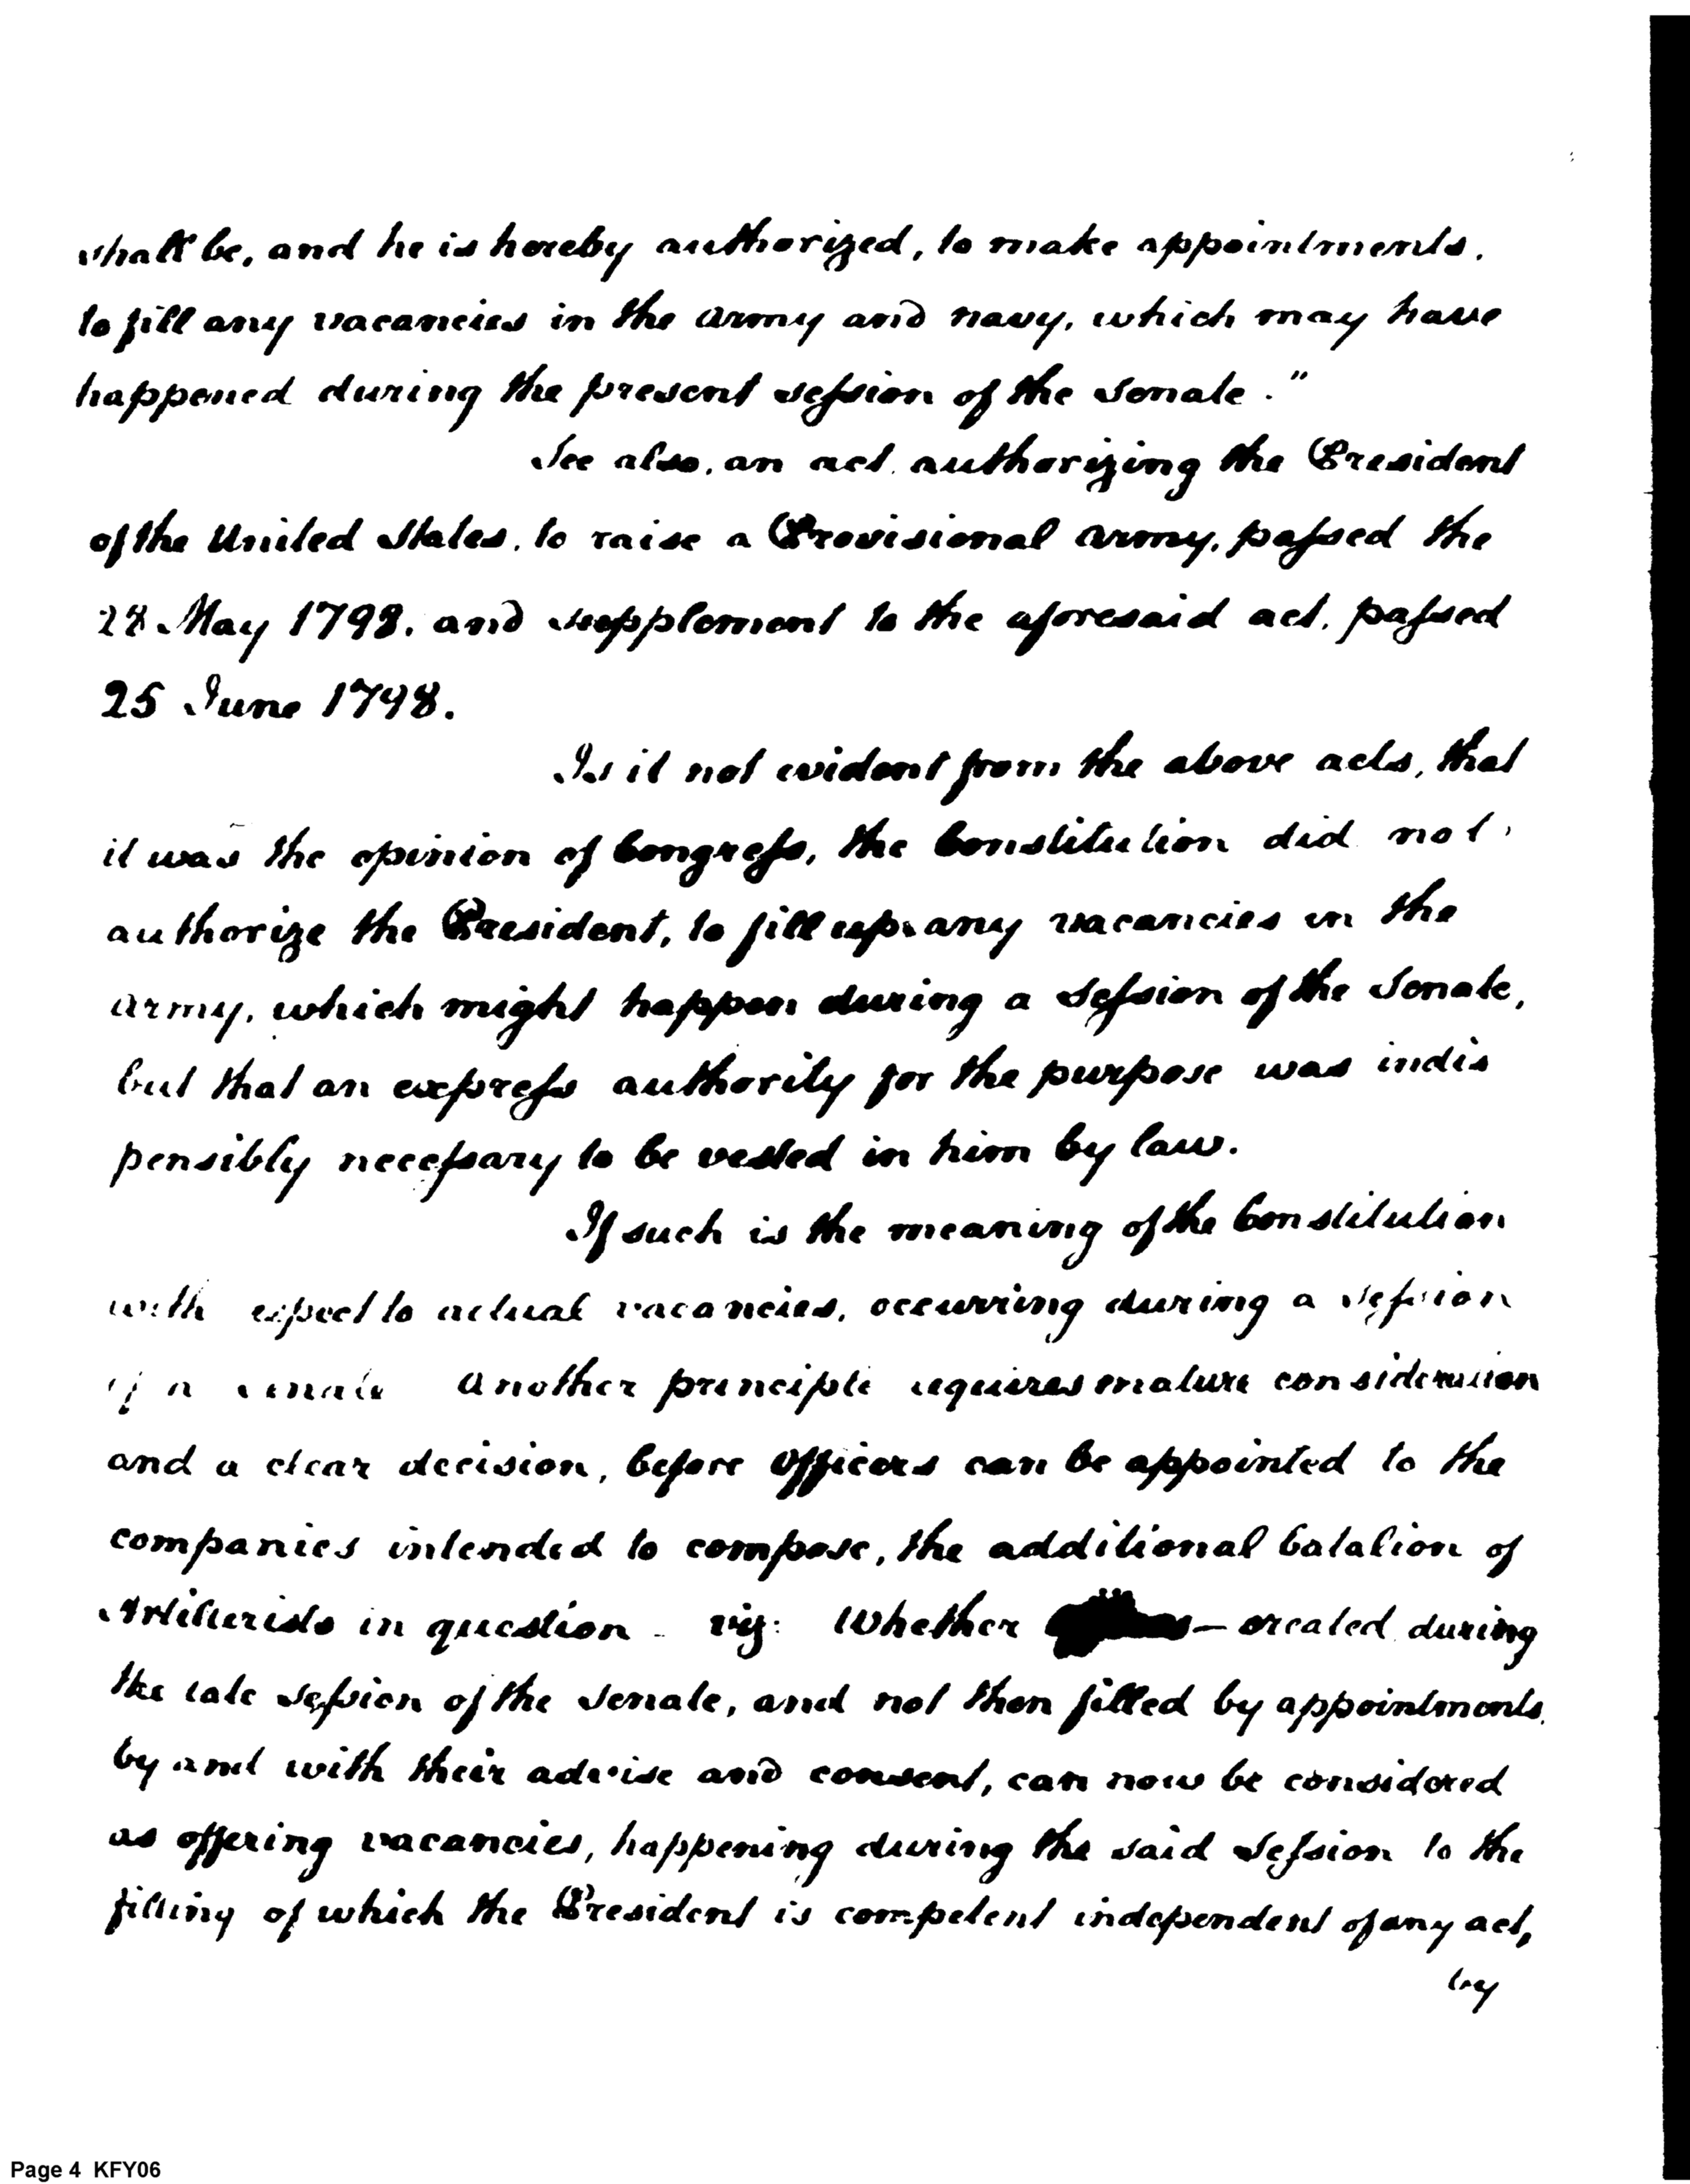 shall be, and he is hereby authorized, to make appointments.
to fill any vacancies in the army and navy, which may have
happened during the present session of the Senate."
See also, an act authorizing the President
of the United States, to raise a Provisional army, passed the
28 May 1798. and supplement to the aforesaid act, passed
25 June 1798.
Is it not evident from the above acts, that
it was the opinion of Congress, the Constitution did not
authorize the President, to fill up any vacancies in the
army, which might happen during a Session of the Senate,
but that an express authority for the purpose was indis
pensibly necessary to be vested in him by law.
If such is the meaning of the Constitution
with respect to actual vacancies, occurring during a session
of a Senate another principle requires mature consideration
and a clear decision, before Officers can be appointed to the
companies intended to compose, the additional batalion of
Artillerists in question - viz: Whether - created during
the late session of the Senate, and not then filled by appointments
by and with their advise and consent, can now be considered
as offering vacancies, happening during the said Session to the
filling of which the President is competent independent of any act,
by
Page 4 KFY06